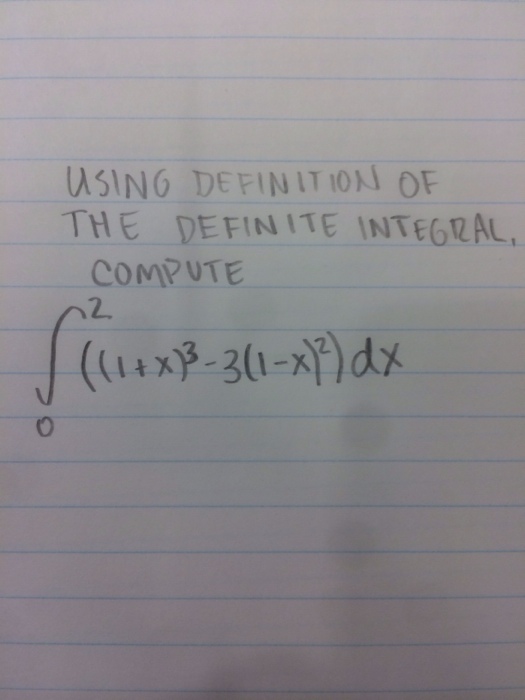 USING DEFINITION OF
THE DEFINITE INTEGRAL,
COMPUTE
∫₀² ((1+x)³-3(1-x)²)dx